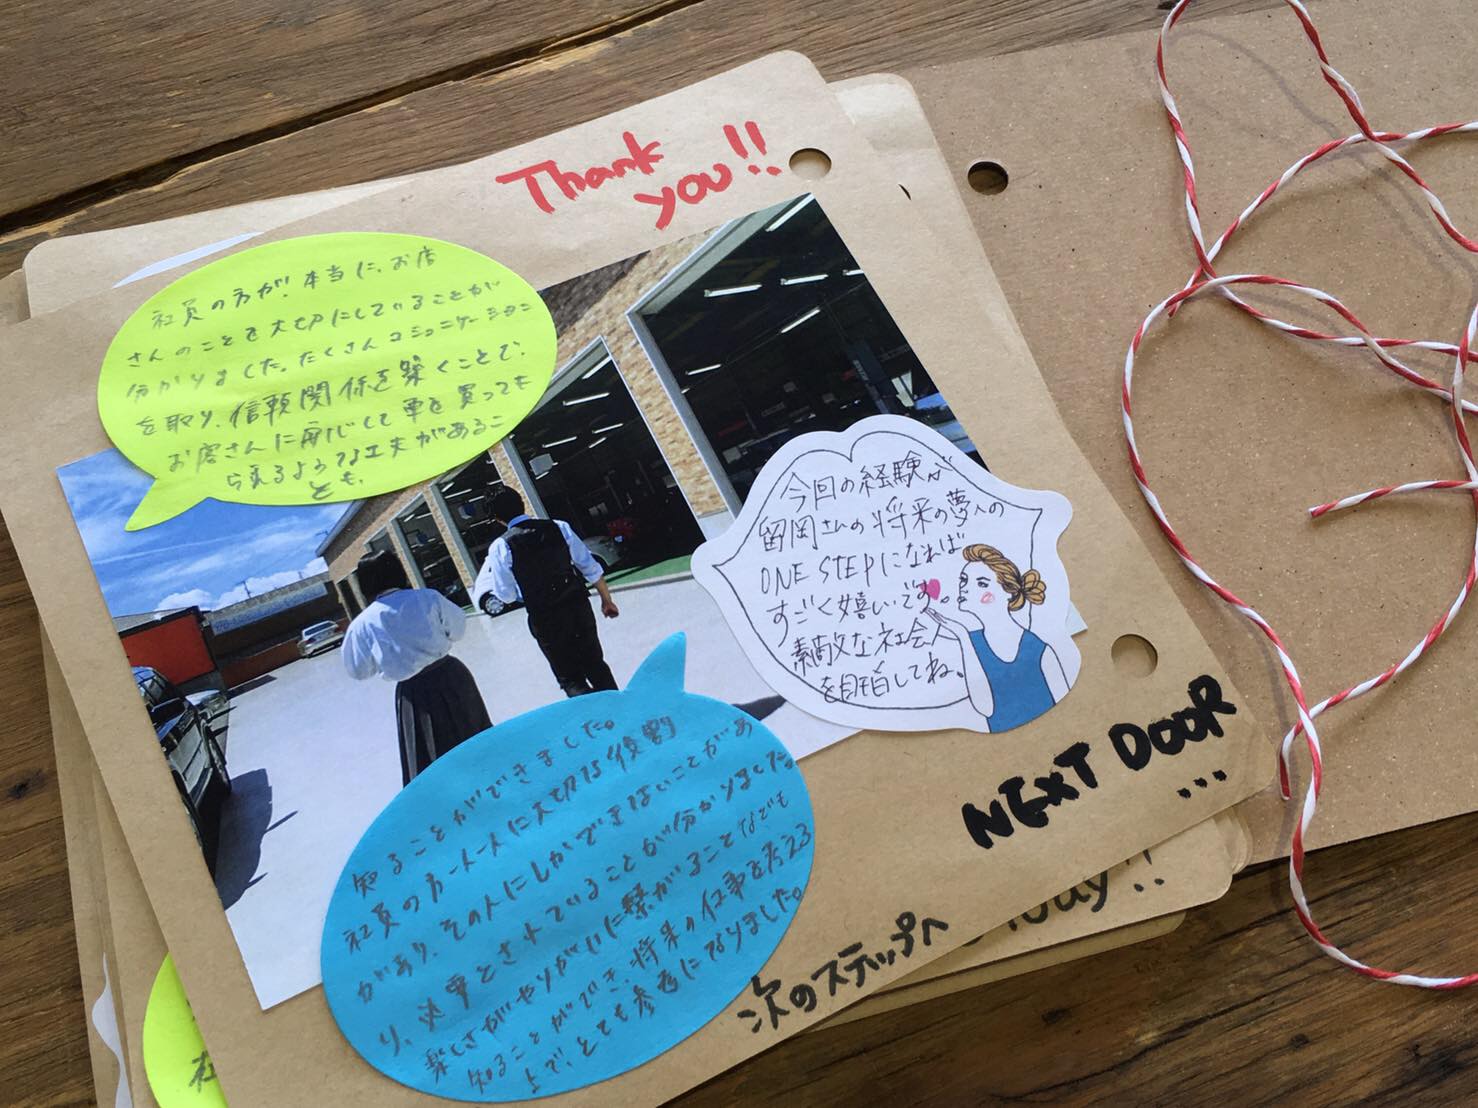 Thank
you!!
社員の方が、本当に、お客
さんのことを大切にしていることが
分かりました。たくさんコミュニケーション
を取り、信頼関係を築くことで、
お客さんに安心して車を買っても
らえるような工夫があるこ
とも、
今回の経験が
留岡さんの将来の夢への
ONE STEPになれば
すごく嬉しいです。
素敵な社会人
を目指してね。
知ることができました。
社員の方一人一人に大切な役割
があり、その人にしかできないことがあ
り、必要とされていることが分かりました
楽しさがやりがいに繋がることなども
知ることができ、将来の仕事を考える
上で、とても参考になりました。
NEXT DOOR
...
次のステップへ